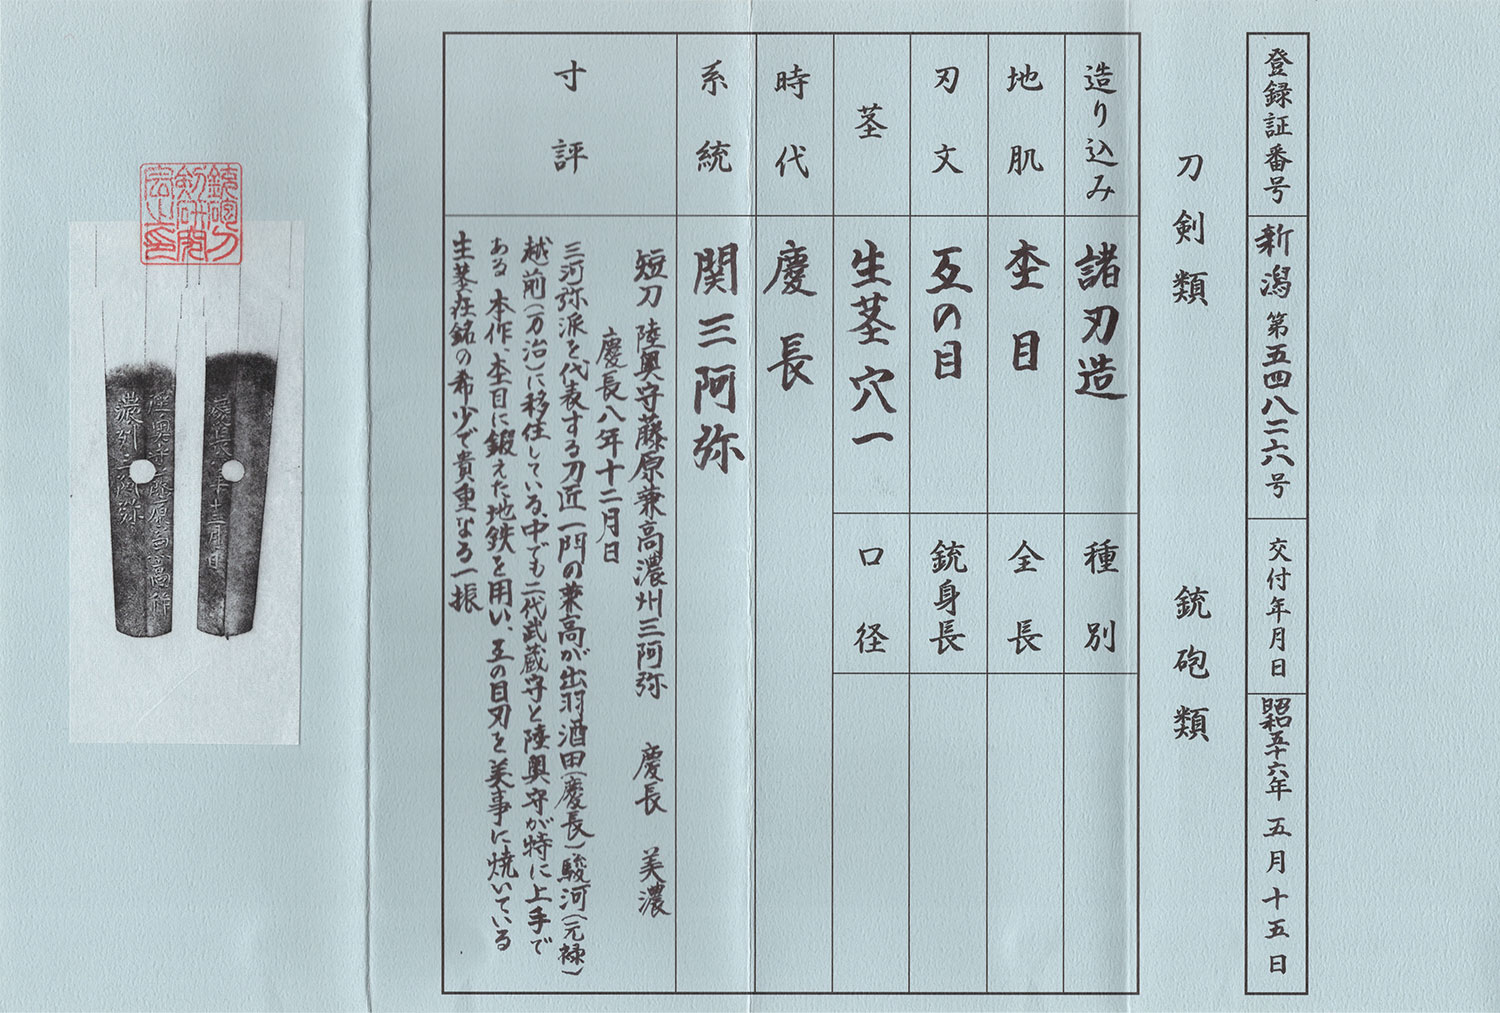 登録証番号 新潟 第五四八二六八号 交付年月日 昭和五十六年 五月十五日
刀剣類 銃砲類
造り込み 諸刃造 種別
地肌 杢目 全長
刃文 互の目 銃身長
茎 生茎穴一 口径
時代 慶長
系統 関三阿弥
寸評
短刀 陸奥守藤原兼高濃州三阿弥 慶長 美濃
慶長八年十二月日
三河弥派を代表する刀匠一門の兼高が出羽酒田(慶長)駿河(元禄)
越前(万治)に移住している、中でも二代武蔵守と陸奥守が特に上手で
ある 本作、杢目に鍛えた地鉄を用い、互の目刃を美事に焼いている
生茎在銘の希少で貴重なる一振
濃州三阿弥